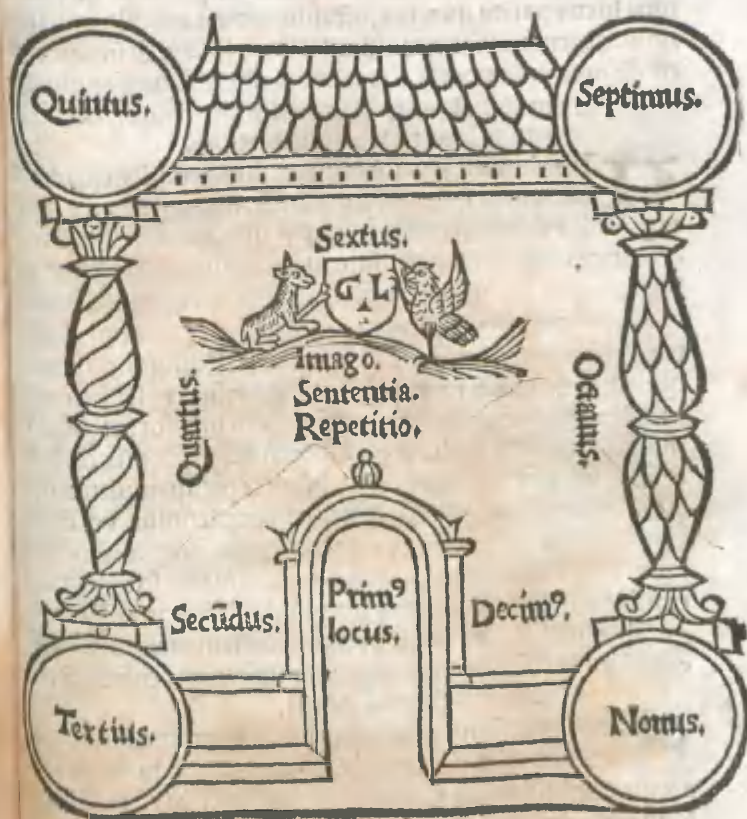 Quintus.
Septimus.
Sextus.
G L
Imago.
Sententia.
Repetitio.
Quartus.
Octauus.
Secūdus.
Primꝰ
locus.
Decimꝰ.
Tertius.
Nonus.